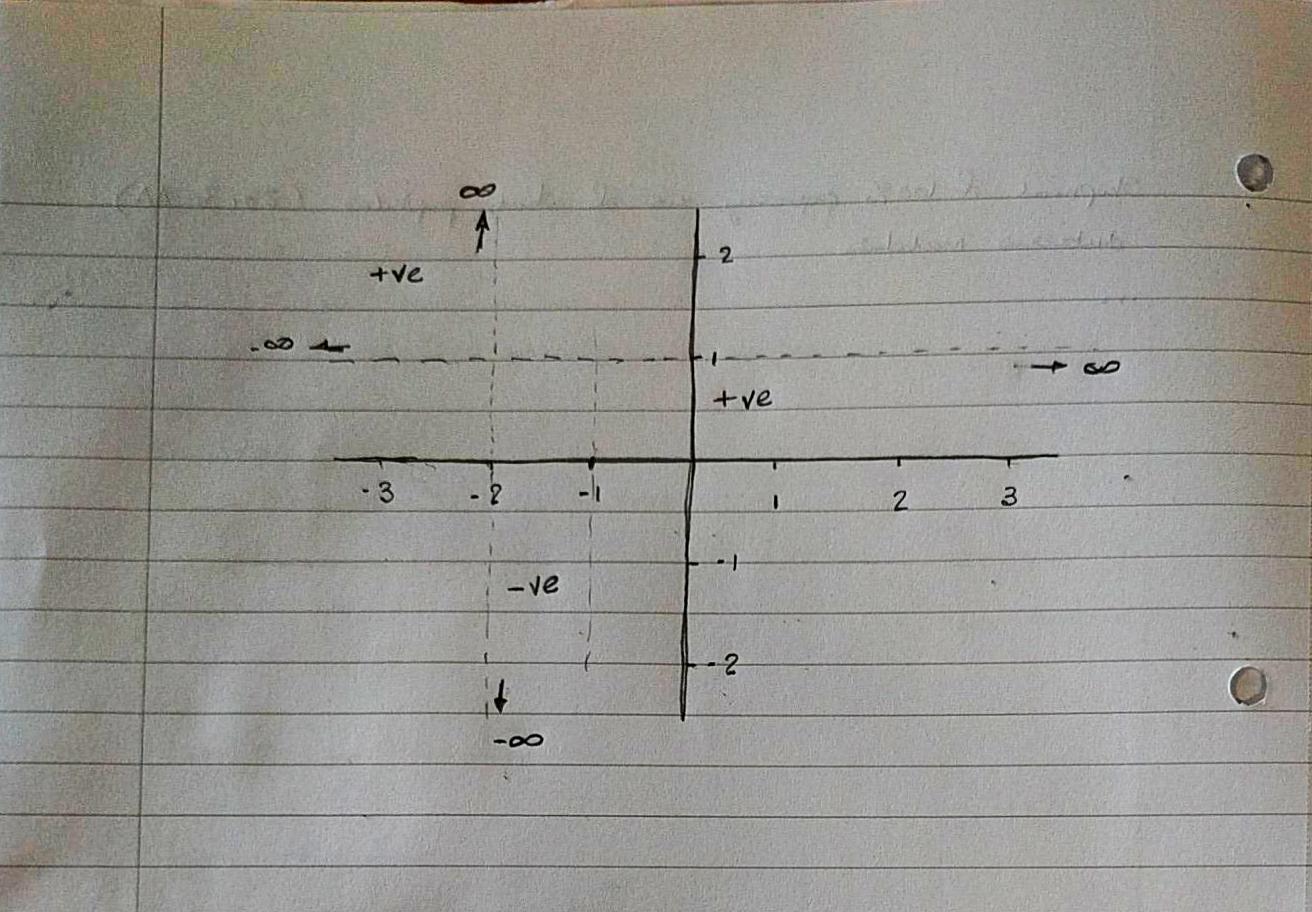 ∞
2
+ve
-∞
1
∞
+ve
-3 -2 -1 1 2 3
-1
-ve
-2
-∞